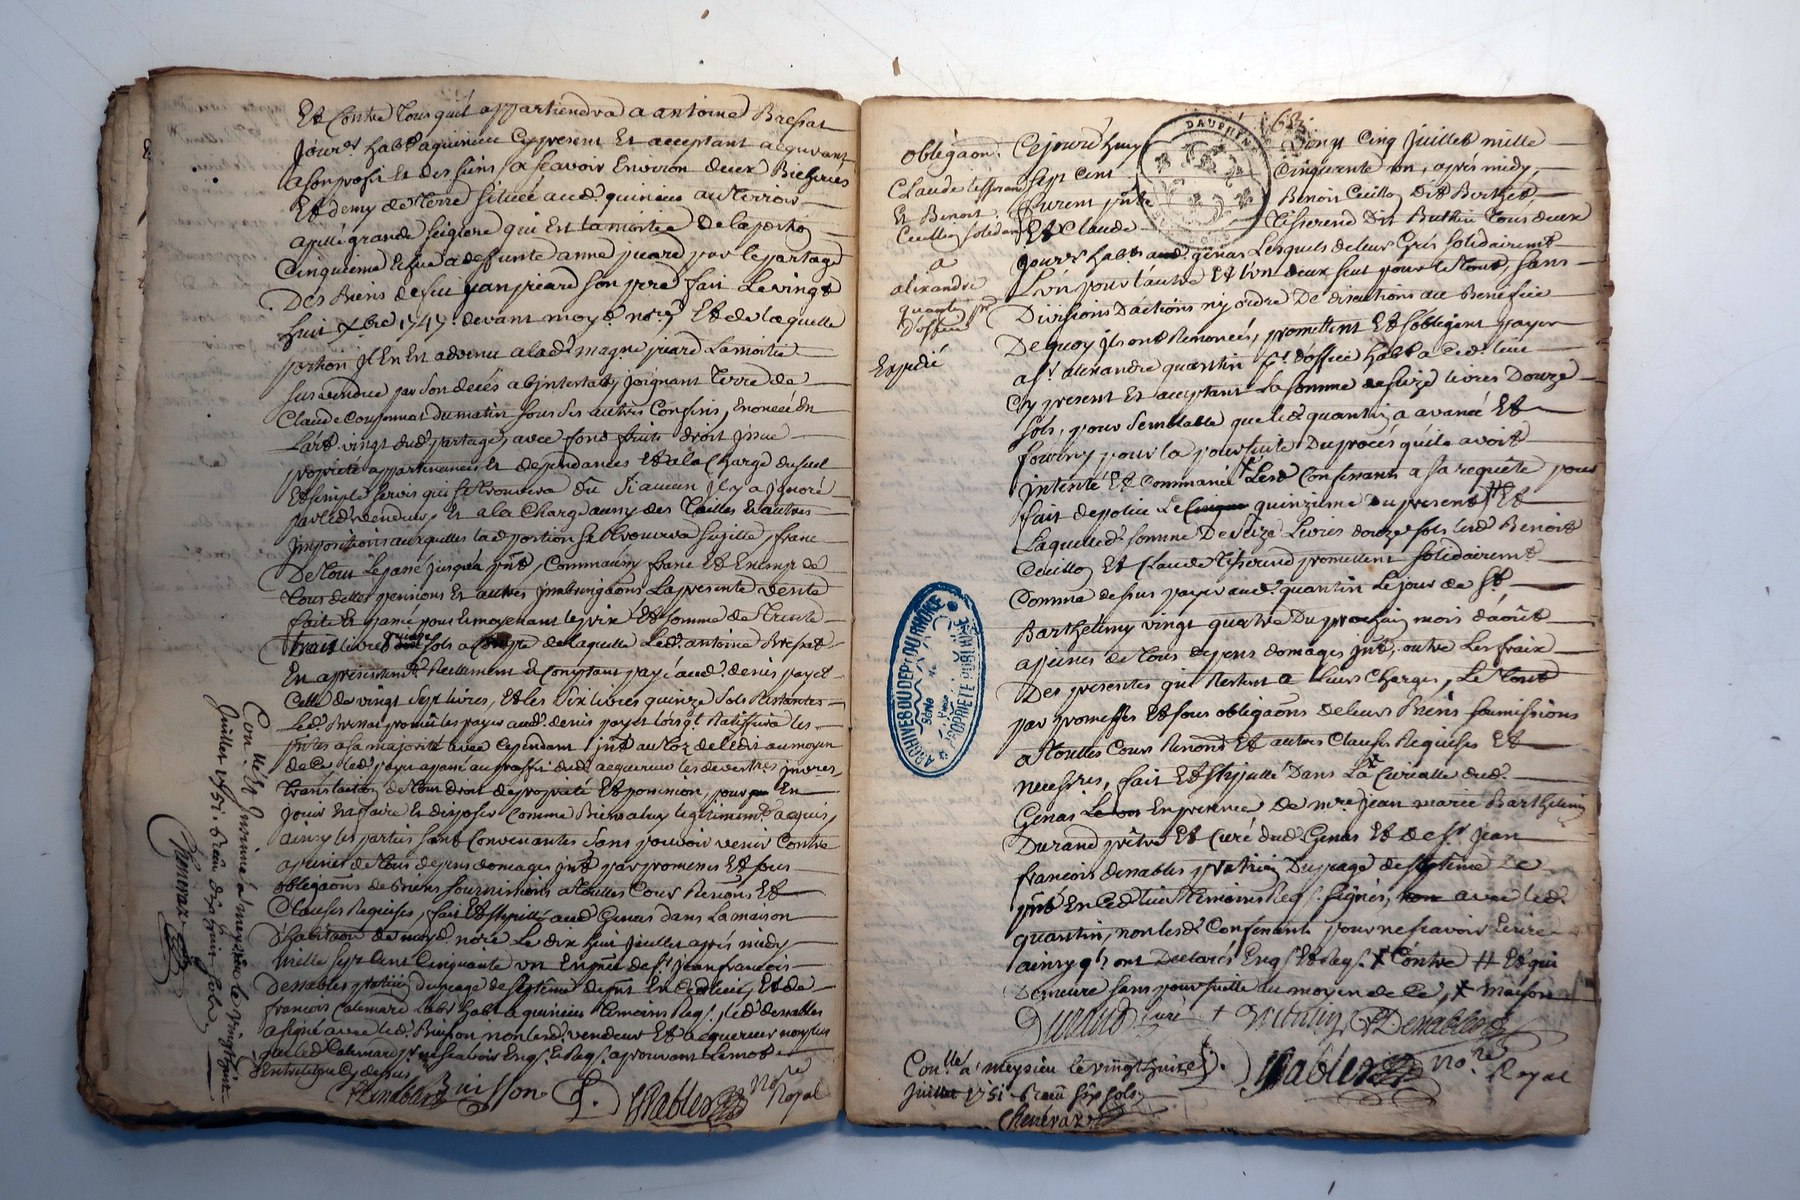 Et Contre Tous quil appartiendra a antoine Bressat
Jour.r hab.t a quinieu Cy present Et acceptant acquerant
a son profit Et des siens /a scavoir Environ deux Bicherées
Et demy de Terre située aud. quinieu au Terroir
apellé grande seiglere qui Est la moitié De la portion
Cinquieme Echue a defunte anne picard par le partage
Des Biens de feu jean picard son pere fait Le vingt
huit xbre 1747. devant moyd. no.re Et de laquelle
portion Il En Est advenu a lad. magne picard La moitié
susvendue par son decés abintestat, joignant Terre de
Claude Couzonnat du matin sous ses autres Confins, Enoncés En
Lart. vingt dud. partage, avec fond fruits droit jssue
proprieté appartenances Et dependances Et a la Charge du seul
Et simple servis qui se Trouvera Dû si aucun Il y a jgnoré
par led. vendeur, Et a la Charge aussy des Tailles Et autres
Impositions auxquelles lad. portion se Trouvera sujette, franc
De Tout Le passé jusqu'a p.nt, Comme aussy franc Et Exempt de
Tous dettes pensions Et autres jmbringaons La presente vente
faite Et passée pour Et moyenant le prix Et somme de Trente
Trois livres quinze sols a Compte de laquelle Led. antoine Bressat
En a presentem.t Reellement Et Comptant payé aud. denis payet
Celle de vingt sept livres, Et les six livres quinze sols Restantes
Led. Bressat promet les payer aud. denis payet lorsq.l Ratiffiera les
p.ntes a sa majorité avec Cependant l'jnt. au Taux de l'Edit au moyen
de Ce led. payet a passé au proffit dud. acquereur les devestes jnvest.
translation de Tout droit de proprieté Et possession, pour En
jouir En faire Et disposer Comme Bien a luy legitimem.t acquis,
ainsy les parties sont Convenantes sans pouvoir venir Contre
a peines de Tous depens domages jnt. par promesses Et sous
obligaons de Biens soumissions a Toutes Cours Renons Et
Clauses Requises, fait Et stipullé aud. Genas dans La maison
d'habitaon de moyd. no.re Le dix huit juillet aprés midy
Mille sept Cent Cinquante un En p.nce de s.r jean francois
Desnables praticien du peage de septeme De p.nt En Ced. lieu, Et de
francois Calemard lab.r hab.t a quinieu Temoins Req. led. desnables
a signé avec led. Buisson non led. vendeur Et acquereur non plus
que led. Calemard p.r ne scavoir Enq. Et Req. aprouvant Le mot
Entreligne Cy dessus
Desnables Buisson D. Desnables no.re Royal
Con.llé Et Insinué a meyzieu le vingt huit
Juillet 1751. R eceu dix huit sols
Chenevaz
68
DAUPHINÉ
obligaon
Claude tisserand
Et Benoit
Cuillo solidair.t
a
alexandre
quantin p.r
d'office
Expedié
Cejourd'huy Vingt Cinq Juillet mille
sept Cent Cinquante un, aprés midy,
furent p.nts Benoit Cuillo, Dit Berthet,
Et Claude Tisserand Dit Buthion Tous deux
jour.rs hab.ts aud. genas Lesquels de leur Gré solidairem.t
L'un pour l'autre Et l'un deux seul pour le Tout, sans
Divisions D'actions ny ordre De discutions au Benefice
De quoy Ils ont Renoncé, promettent Et s'obligent payer
a s.r alexandre quantin p.r d'office hab.t a Ced. lieu
Cy present Et acceptant La somme de seize livres Douze
sols, pour semblable que led. quantin a avancé Et
fourny pour la poursuite Du procés qu'il avoit
Intenté Et Commancé + Lesd. Confessants a sa requête pour
fait de police Le quinzieme du present # Et
Laquelle d. somme De seize Livres douze sols lesd. Benoit
Cuillo Et Claude Tisserand promettent solidairem.t
Comme dessus payer aud. quantin Le jour de S.t
Barthelemy vingt quatre Du prochain mois d'aoüt
a peines de Tous depens domages jnt. outre Les fraix
Des presentes qui Restent a leurs Charges, Le Tout
par promesses Et sous obligaons de leurs Biens soumissions
a Toutes Cours Renons Et autres Clauses Requises Et
necess.res, fait Et stipullé Dans La x Curialle dud.
Genas En presence de m.re Jean marie Barthelemy
Durand prêtre Et Curé dud. Genas Et de S.r Jean
francois desnables praticien Du peage de septeme De
p.nt En Ced. lieu Temoins Req. signés, avec led.
quantin, non lesd. Confessants pour ne scavoir Ecrire
ainsy q.ls ont Declarés Enq. Et Req. + Contre # Et qui
Demeure sans poursuitte au moyen de Ce, x maison
Durand Curé + quantin Desnables
Con.llé a meyzieu le vingt huit D. Desnables no.re Royal
Juillet 1751 R eceu six sols
Chenevaz
ARCHIVES DU DEPT DU RHONE
PROPRIETE PUBLIQUE